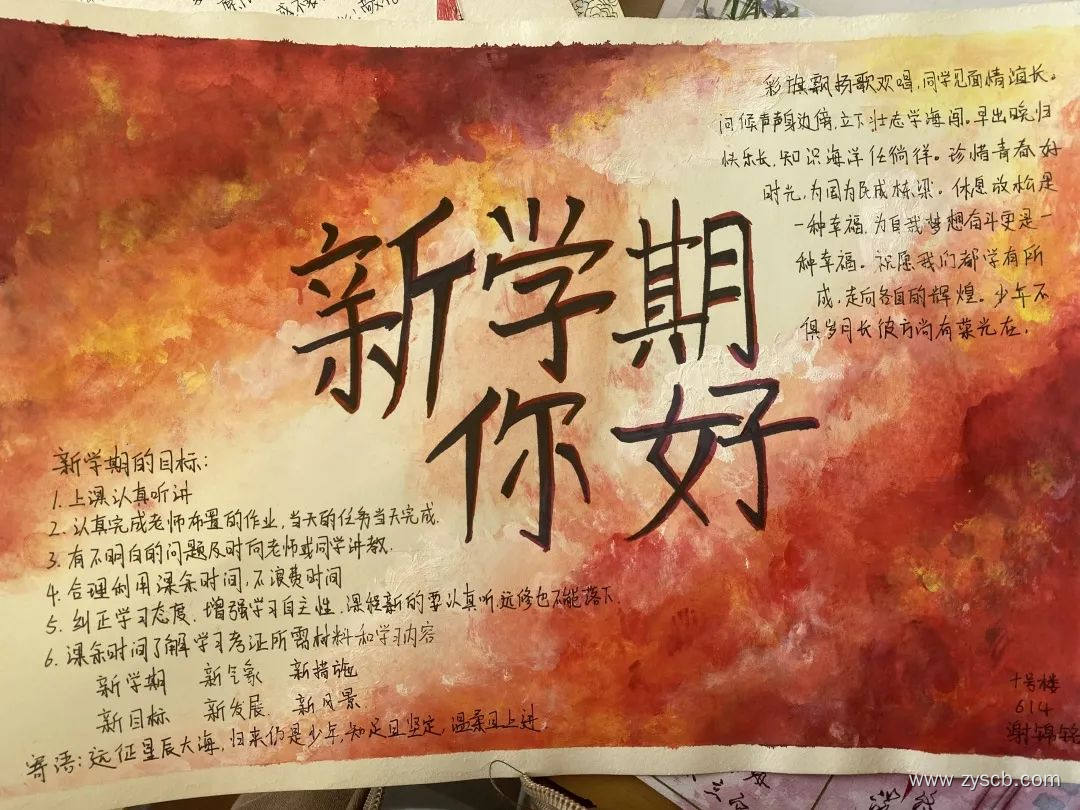 新学期
你好
彩旗飘扬歌欢唱,同学见面情谊长。
问候声声身边倚,立下壮志学海闯。早出晚归
快乐长,知识海洋任徜徉。珍惜青春好
时光,为国为民成栋梁。休息放松是
一种幸福,为自我梦想奋斗更是一
种幸福。祝愿我们都学有所
成,走向各自的辉煌。少年不
惧岁月长彼方尚有荣光在.
新学期的目标:
1.上课认真听讲
2.认真完成老师布置的作业,当天的任务当天完成.
3.有不明白的问题及时向老师或同学讲教.
4.合理利用课余时间,不浪费时间
5.纠正学习态度.增强学习自主性.课程新的要认真听.选修也不能落下.
6.课余时间了解学习考证所需材料和学习内容
新学期 新气象 新措施
新目标 新发展. 新风景.
寄语:远征星辰大海,归来仍是少年,知足且坚定,温柔且上进.
十号楼
614
谢锦铭
www.zyscb.com